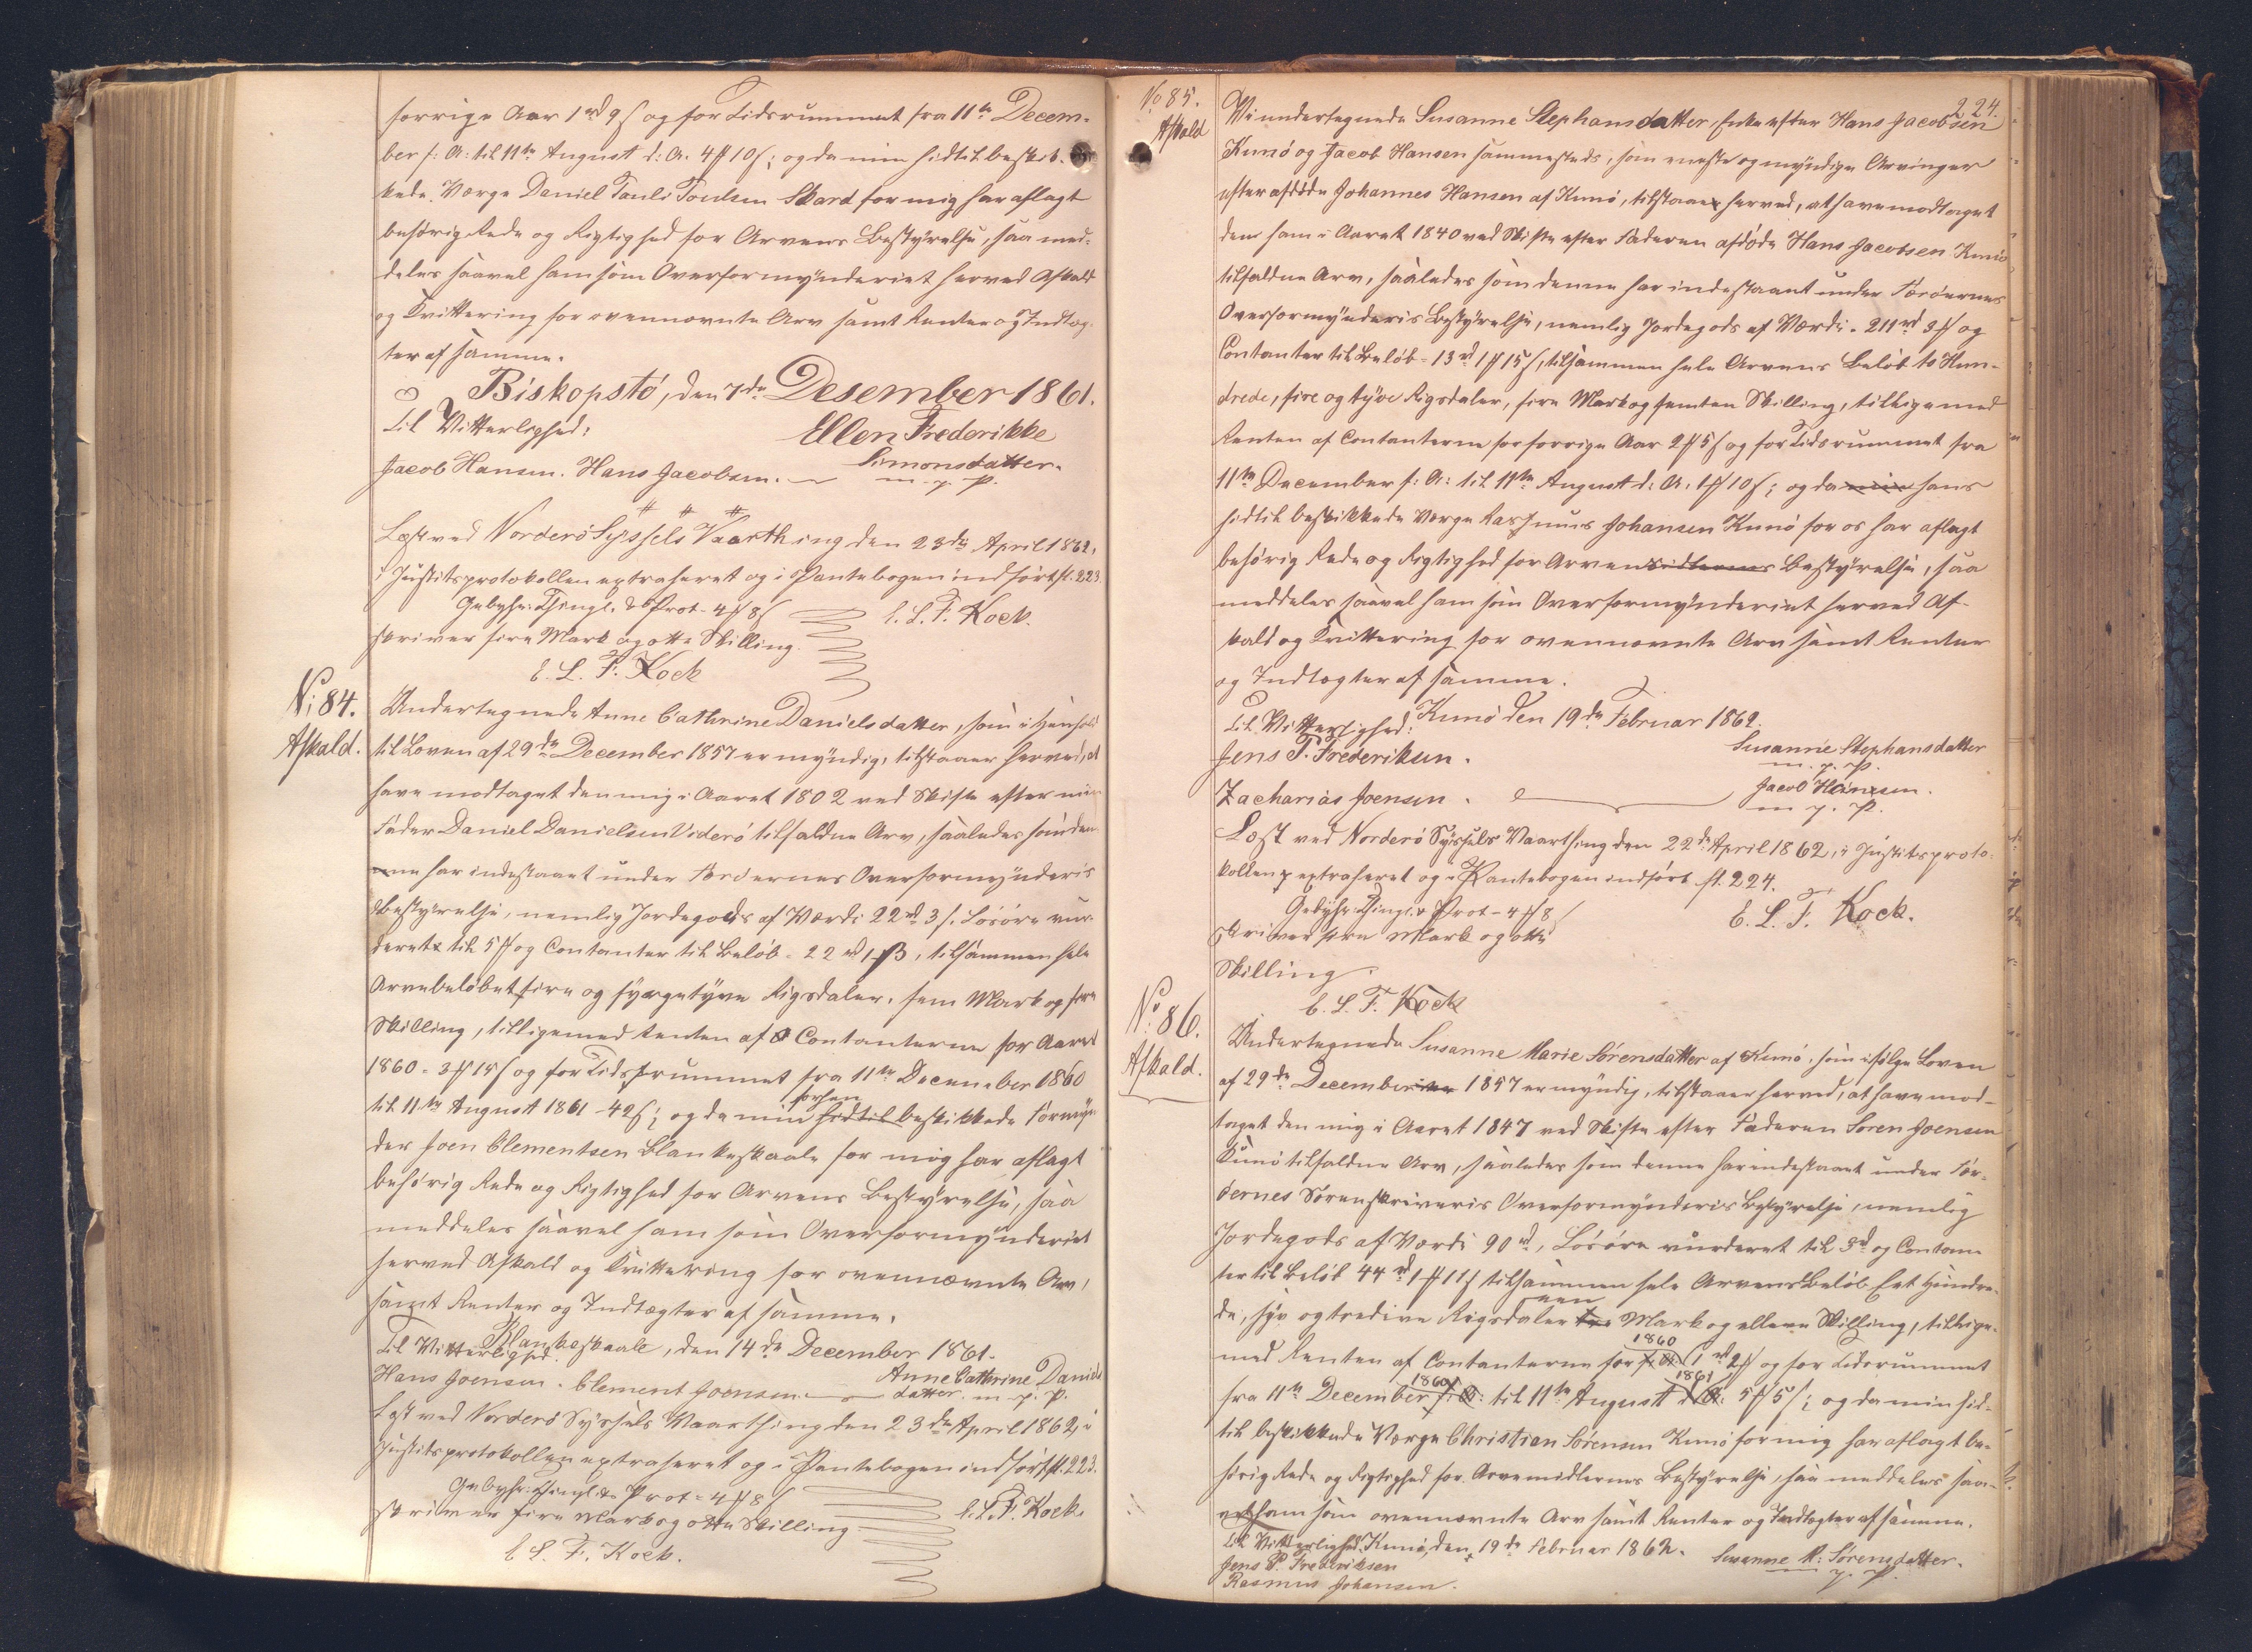 forrige Aar 1 rd 9 s og for Tidsrummet fra 11te Decem-
ber f: A: til 11te August d: A. 4 # 10 s; og da min hidtil beskik-
kede Værge Daniel Pauli Poulsen Skard for mig har aflagt
behørig Rede og Rigtighed for Arvens Bestyrelse, saa med-
deles saavel ham som Overformynderiet herved Afkald
og Kvittering for ovennævnte Arv samt Renter og Indtæg-
ter af samme.
Biskopstø, den 7de Desember 1861.
Til Vitterlighed:
Ellen Frederikke
Simonsdatter.
Jacob Hansen. Hans Jacobsen.
m. p. P.
# # #
Læst ved Norderø Syssels Vaarthing den 23de April 1862,
i Justitsprotokollen extraheret og i Pantebogen indført fl. 223.
Gebyhr: Thingl. & Prot - 4 # 8 s
E. L. F. Kock.
skriver fire Mark og otte Skilling.
E. L. F. Kock
No 84.
Afkald.
Undertegnede Anne Cathrine Danielsdatter, som i Henhold
til Loven af 29de December 1857 er myndig, tilstaaer herved, at
have modtaget den mig i Aaret 1802 ved Skifte efter min
Fader Daniel Danielsen Viderø tilfaldne Arv, saaledes som den-
ne har indestaaet under Færøernes Overformynderis
Bestyrelse, nemlig Jordegods af Værdi 22 rd 3 s. Løsøre vur-
deret til 5 # og Contanter til Beløb - 22 rd 1 s, tilsammen hele
Arvebeløbet fire og fyrgetyve Rigsdaler, fem Mark og fire
Skilling, tilligemed Renten af Contanterne for Aaret
1860 - 3 # 15 s og for Tidsrummet fra 11te December 1860
til 11te August 1861 - 42 s; og da min hidtil forhen beskikkede Formyn-
der Joen Clementsen Blankeskaale for mig har aflagt
behørig Rede og Rigtighed for Arvens Bestyrelse, saa
meddeles saavel ham som Overformynderiet
herved Afkald og Kvittering for ovennævnte Arv,
samt Renter og Indtægter af samme.
Blankeskaale, den 14de December 1861.
Til Vitterlighed.
Anne Cathrine Daniels
Hans Joensen. Clement Joensen.
datter. m. p. P.
Læst ved Norderø Syssels Vaarthing den 23de April 1862, i
Justitsprotokollen extraheret og i Pantebogen indført fl. 223.
Gebyhr: Thingl. & Prot - 4 # 8 s
skriver fire Mark og otte Skilling.
E. L. F. Kock.
E. L. F. Kock.
224.
No 85.
Afkald
Vi undertegnede Susanne Stephansdatter, Enke efter Hans Jacobsen
Kunø og Jacob Hansen sammesteds, som eneste og myndige Arvinger
efter afdøde Johannes Hansen af Kunø, tilstaaer herved, at have modtaget
den ham i Aaret 1840 ved Skifte efter Faderen afdøde Hans Jacobsen Kunø
tilfaldne Arv, saaledes som denne har indestaaet under Færøernes
Overformynderis Bestyrelse, nemlig Jordegods af Værdi - 211 rd 3 # og
Contanter til Beløb - 13 rd 1 # 15 s, tilsammen hele Arvens Beløb to Hun-
drede, fire og tyve Rigsdaler, fire Mark og femten Skilling, tilligemed
Renten af Contanterne for forrige Aar 2 # 5 s og for Tidsrummet fra
11te December f: A: til 11te August d: A. 1 # 10 s; og da min hans
hidtil beskikkede Værge Rasmus Johansen Kunø for os har aflagt
behørig Rede og Rigtighed for Arvemidlernes Bestyrelse, saa
meddeles saavel ham som Overformynderiet herved Af-
kald og Kvittering for ovennævnte Arv samt Renter
og Indtægter af samme.
Kunø den 19de Februar 1862.
Til Vitterlighed:
Susanne Stephansdatter
Jens P. Frederiksen.
m. p. P.
Jacob Hansen.
Zacharias Joensen.
m. p. P.
Læst ved Norderø Syssels Vaarthing den 22de April 1862, i Justitsproto-
kollen extraheret og i Pantebogen indført fl. 224.
Gebyhr: Thingl. & Prot - 4 # 8 s
E. L. F. Kock.
skriver fire Mark og otte
Skilling.
E. L. F. Kock
No 86.
Afkald.
Undertegnede Susanne Marie Sørensdatter af Kunø, som ifølge Loven
af 29de December 1857 er myndig, tilstaaer herved, at have mod-
taget den mig i Aaret 1847 ved Skifte efter Faderen Søren Joensen
Kunø tilfaldne Arv, saaledes som denne har indestaaet under Fær-
øernes Sørenskriveris Overformynderis Bestyrelse, nemlig
Jordegods af Værdi 90 rd, Løsøre vurderet til 3 rd og Contan-
ter til Beløb 44 rd 1 # 11 s tilsammen hele Arvens Beløb Eet Hundre-
de, syv og tredive Rigsdaler een Mark og elleve Skilling, tillige-
med Renten af Contanterne for f: A: 1860 1 rd 2 # og for Tidsrummet
fra 11te December f: A: 1860 til 11te August d: A: 1861 5 # 5 s; og da min hid-
til beskikkede Værge Christian Sørensen Kunø for mig har aflagt be-
hørig Rede og Rigtighed for Arvemidlernes Bestyrelse, saa meddeles saa-
vel ham som ovennævnte Arv samt Renter og Indtægter af samme.
Til Vitterlighed. Kunø, den 19de Februar 1862.
Susanne M: Sørensdatter.
Jens P. Frederiksen
m. p. P.
Rasmus Johansen.